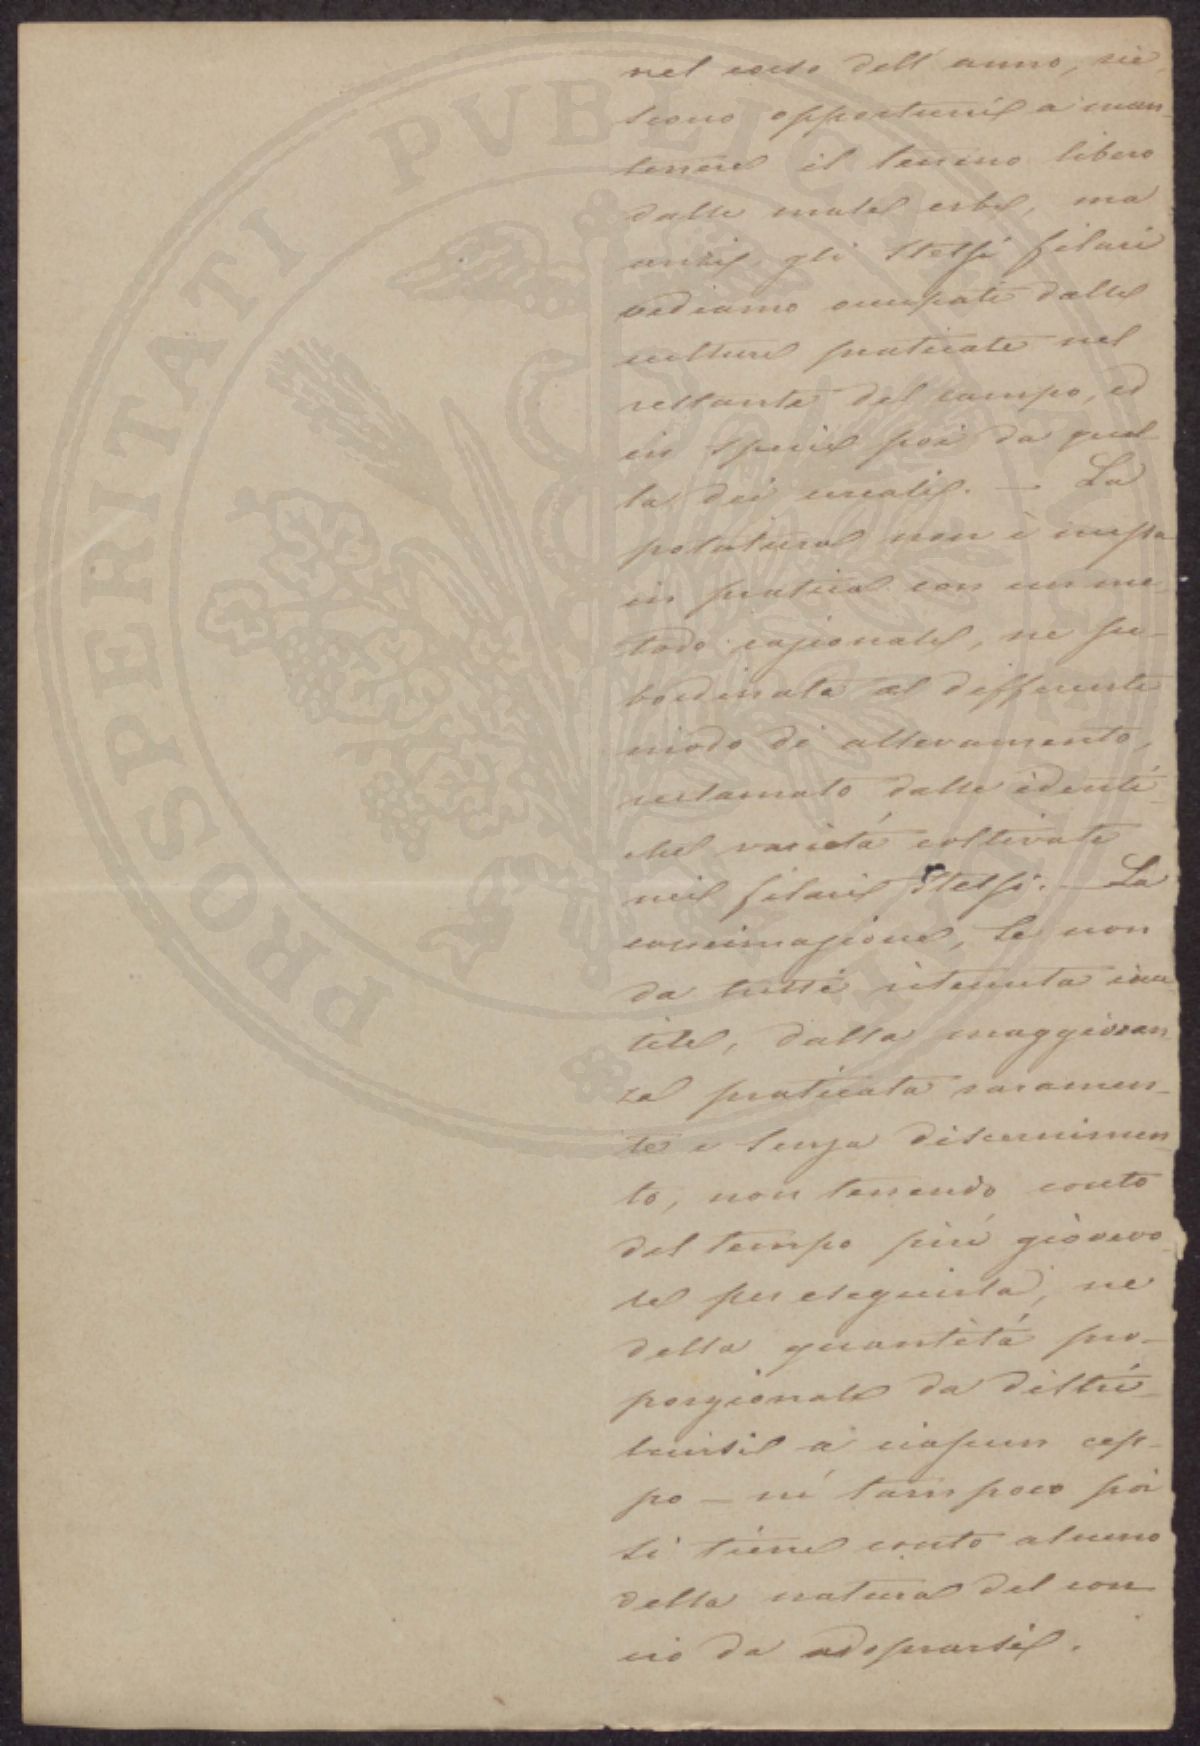 PROSPERITATI PVBLICAE
nel corso dell'anno, rie-
scono opportuni a man-
tenere il terreno libero
dalle male erbe, ma
anzi gli stessi filari
vediamo occupati dalle
culture praticate nel
restante del campo, ed
in specie poi da quel-
la dei cereali. — La
potatura non è messa
in pratica con un me-
todo razionale, ne su-
bordinata al differente
modo di allevamento,
reclamato dalle identi-
che varietá coltivate
nei filari stessi. — La
concimazione, se non
da tutti ritenuta inu-
tile, dalla maggioran-
za praticata raramen-
te e senza discernimen
to, non tenendo conto
del tempo piú giovevo-
le per eseguirla, ne
della quantitá pro-
porzionale da distri-
buirsi a ciascun cep-
po — né tampoco poi
si tiene conto alcuno
della natura del con
cio da adoprarsi.